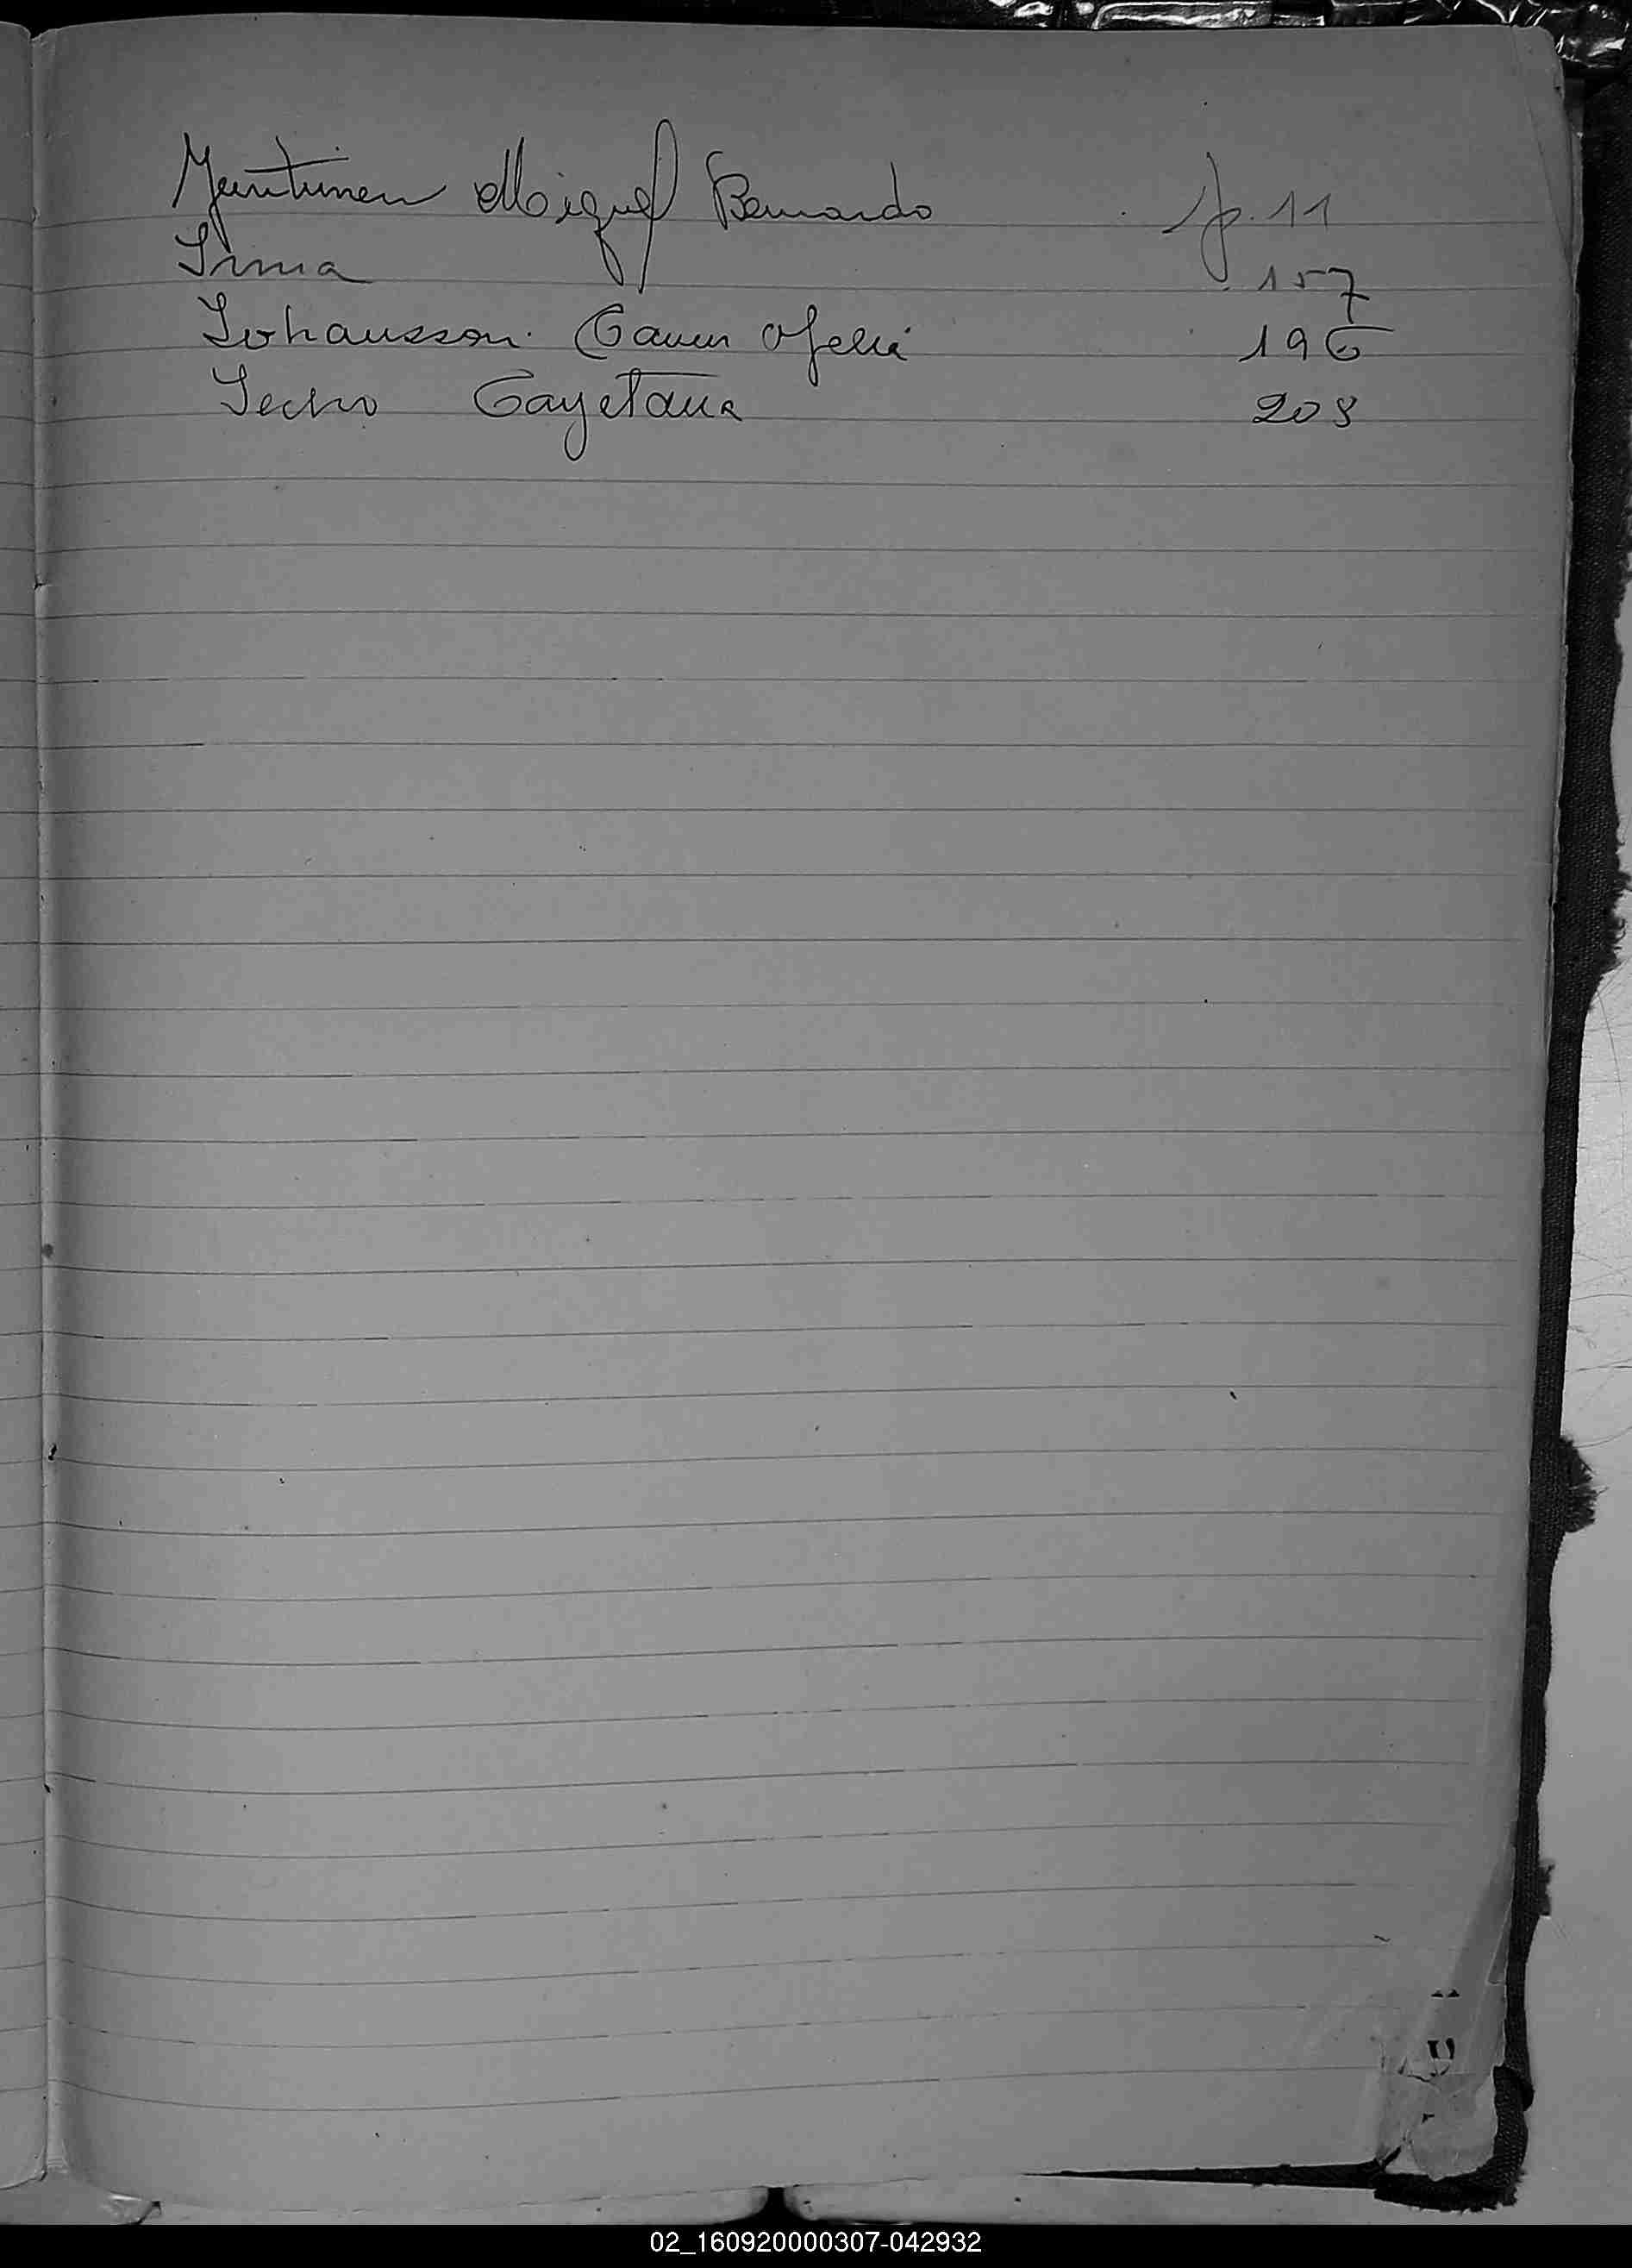 Juntunen Miguel Bernardo p. 11
Irma 157
Johansson Carmen Ofelia 196
Cayetana 208
02_160920000307-042932